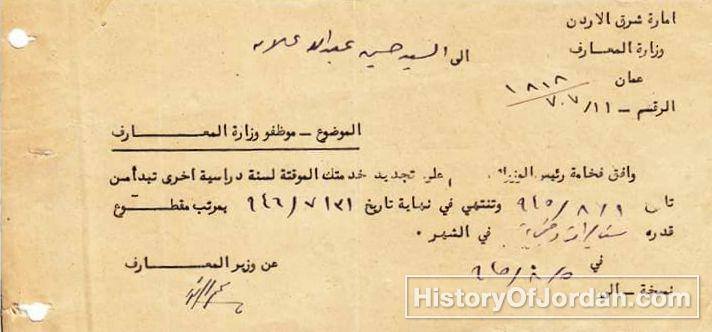 امارة شرق الاردن
وزارة المعارف
عمان
الرقم – ٧٠٧/١١/١٨١٨
الى السيد حسين عبدالله علاوه
الموضوع – موظفو وزارة المعارف
وافق فخامة رئيس الوزراء على تجديد خدمتك الموقتة لسنة دراسية اخرى تبدأ من
٩٤٥/٨/١ وتنتهي في نهاية تاريخ ٩٤٦/٧/٣١ بمرتب مقطوع
قدره في الشهر .
في ٩٤٥/٨/٥
عن وزير المعارف
نسخة – الى
HistoryOfJordan.com